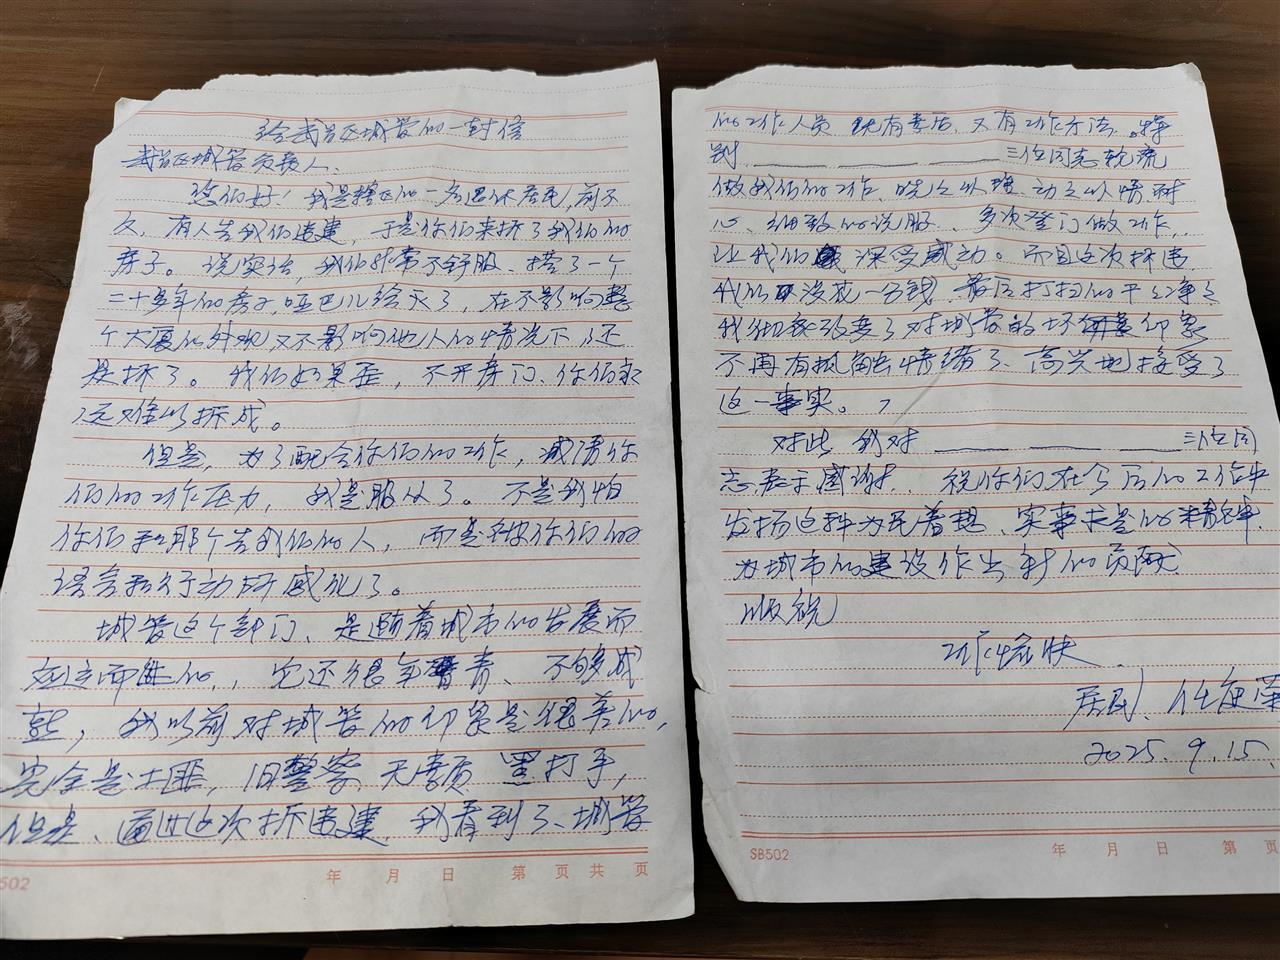 给武昌区城管的一封信
武昌区城管负责人、
您们好！我是辖区的一名退休居民，前不
久，有人告我们违建，于是你们来拆了我们的
房子。说实话，我们非常不舒服、搭了一个
二十多年的房子，哑巴儿给灭了，在不影响整
个大厦的外观，又不影响他人的情况下，还
是拆了。我们如果歪，不开房门、你们永
远难以拆成。
但是，为了配合你们的工作，减清你
们的工作压力，我是服从了。不是我怕
你们和那个告我们的人，而是被你们的
语言和行动所感化了。
城管这个部门、是随着城市的发展而
应运而生的，它还很年青、不够成
熟，我以前对城管的印象是很差的，
完全是土匪，旧警察，无素质 黑打手，
但是、通过这次拆违建，我看到了、城管
502 年 月 日 第 页 共 页
的工作人员 既有素质、又有工作方法。特
别 三位同志轮流
做我们的工作、晓之以理、动之以情 耐
心、细致的说服、多次登门做工作，
让我们深受感动。而且这次拆违，
我们没花一分钱，最后打扫的干干净净
我彻底改变了对城管的坏印象
不再有抵触情绪了、高兴地接受了
这一事实。
对此 我对 三位同
志表示感谢，祝你们在今后的工作中
发扬这种为民着想、实事求是的精神，
为城市的建设作出新的贡献
顺祝
工作愉快．
居民、任
2025.9.15.
SB502 年 月 日 第 页